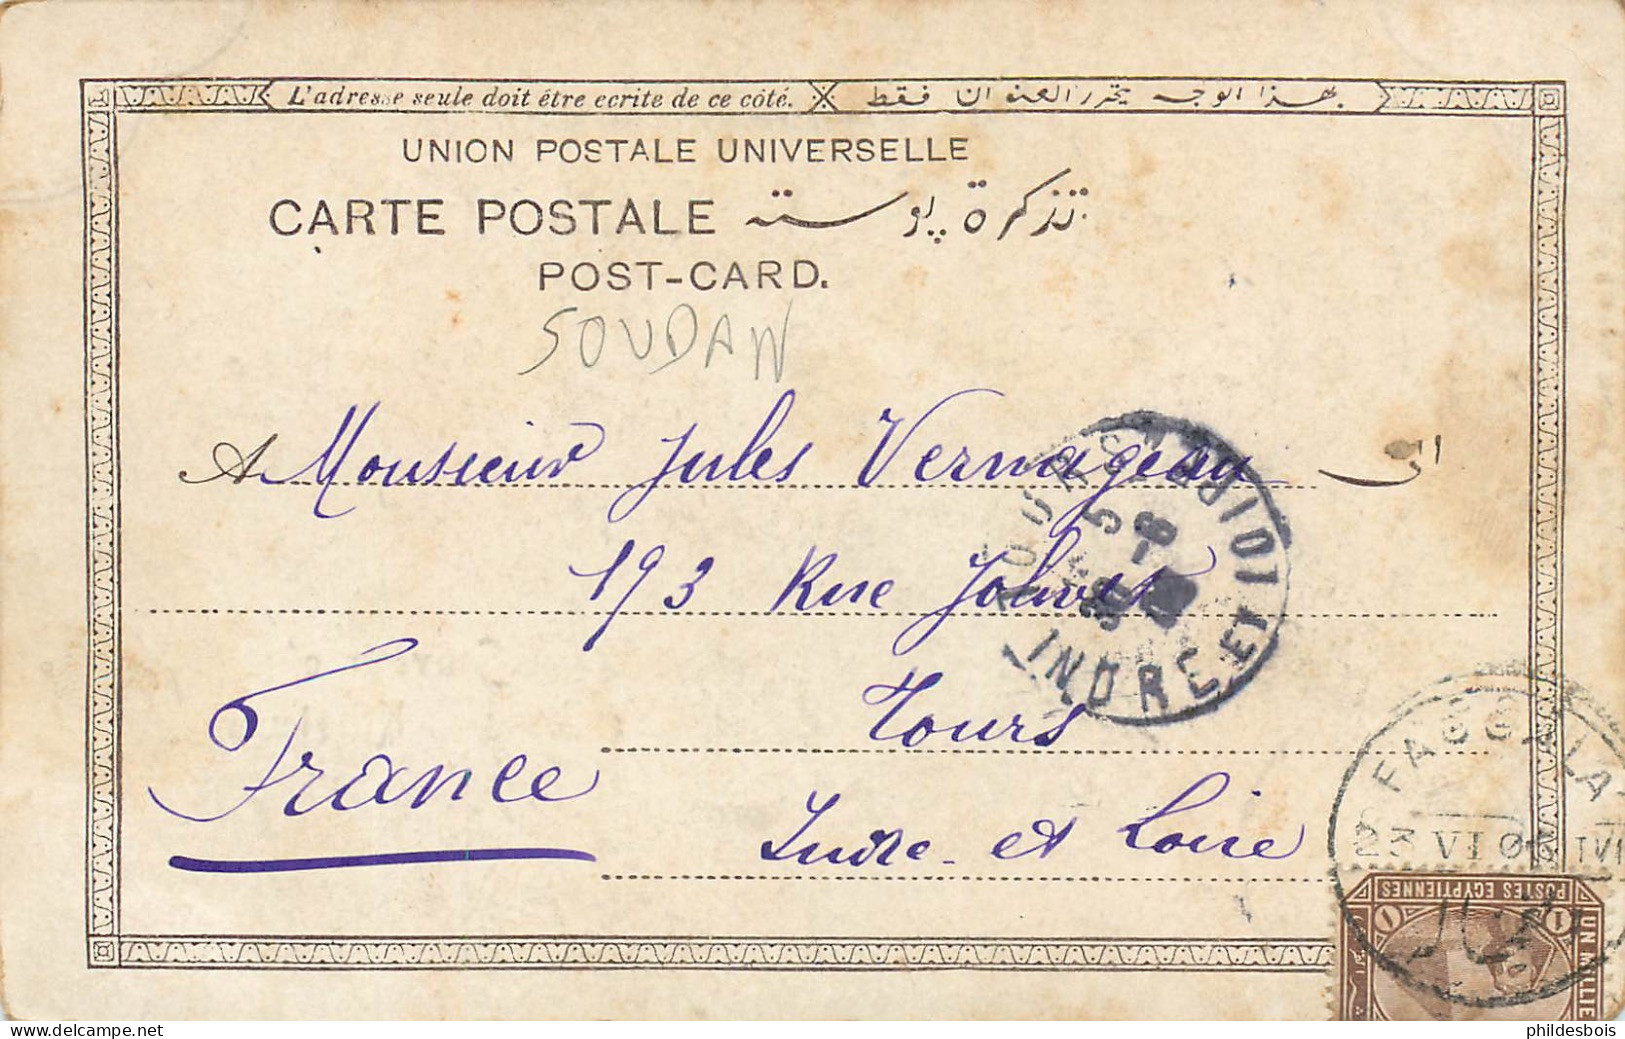 L'adresse seule doit être ecrite de ce côté. بهذا الوجه يحرر العنوان فقط
UNION POSTALE UNIVERSELLE
CARTE POSTALE تذكرة پوسته
POST-CARD.
SOUDAN
A Monsieur Jules Vernageau الى
193 Rue
Tours
France
Indre et Loire
INDRE ET LOIRE
FAGGALA
23 VI 0
POSTES EGYPTIENNES
1
UN MILLIE
phildesbois